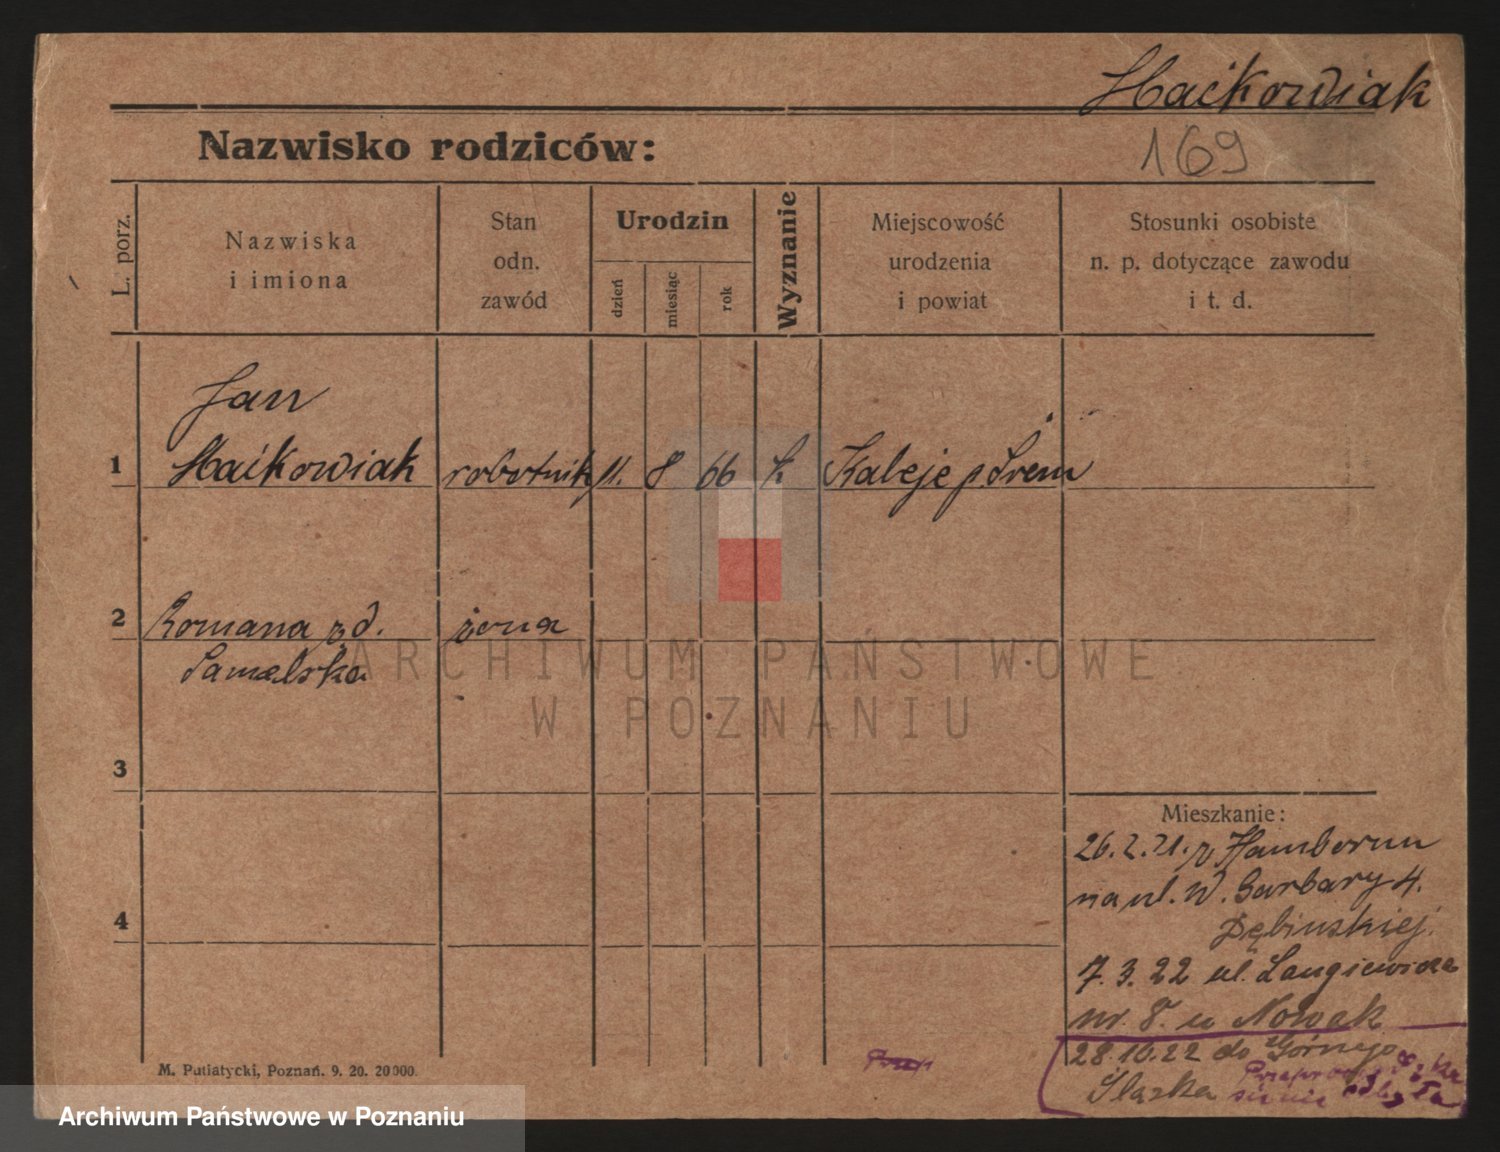 Maćkowiak
169
Nazwisko rodziców:
L. porz.
Nazwiska
i imiona
Stan
odn.
zawód
Urodzin
dzień
miesiąc
rok
Wyznanie
Miejscowość
urodzenia
i powiat
Stosunki osobiste
n. p. dotyczące zawodu
i t. d.
Jan
1 Maćkowiak robotnik 11. 8 66 k Kaleje p. Śrem
2 Romana z d. żona
Samelska
ARCHIWUM PAŃSTWOWE
W POZNANIU
3
Mieszkanie:
26.2.21. z Hamborun
na ul. W. Garbary 4.
4
Dębińskiej.
7.3.22 ul. Langiewicza
nr. 8. u Nowak
28.10.22 do Górnego
Śląska
M. Putiatycki, Poznań. 9. 20. 20000.
Archiwum Państwowe w Poznaniu